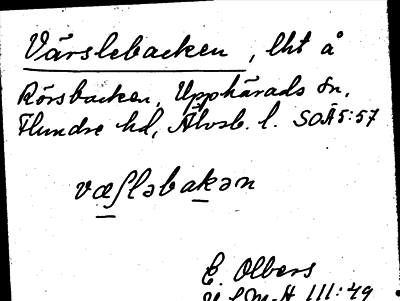 Värslebacken, lht å
Rörsbacken, Upphärads sn,
Flundre hd, Älvsb. l. SOÄ5:57
væʃləbakən
E. Olbers
III:49